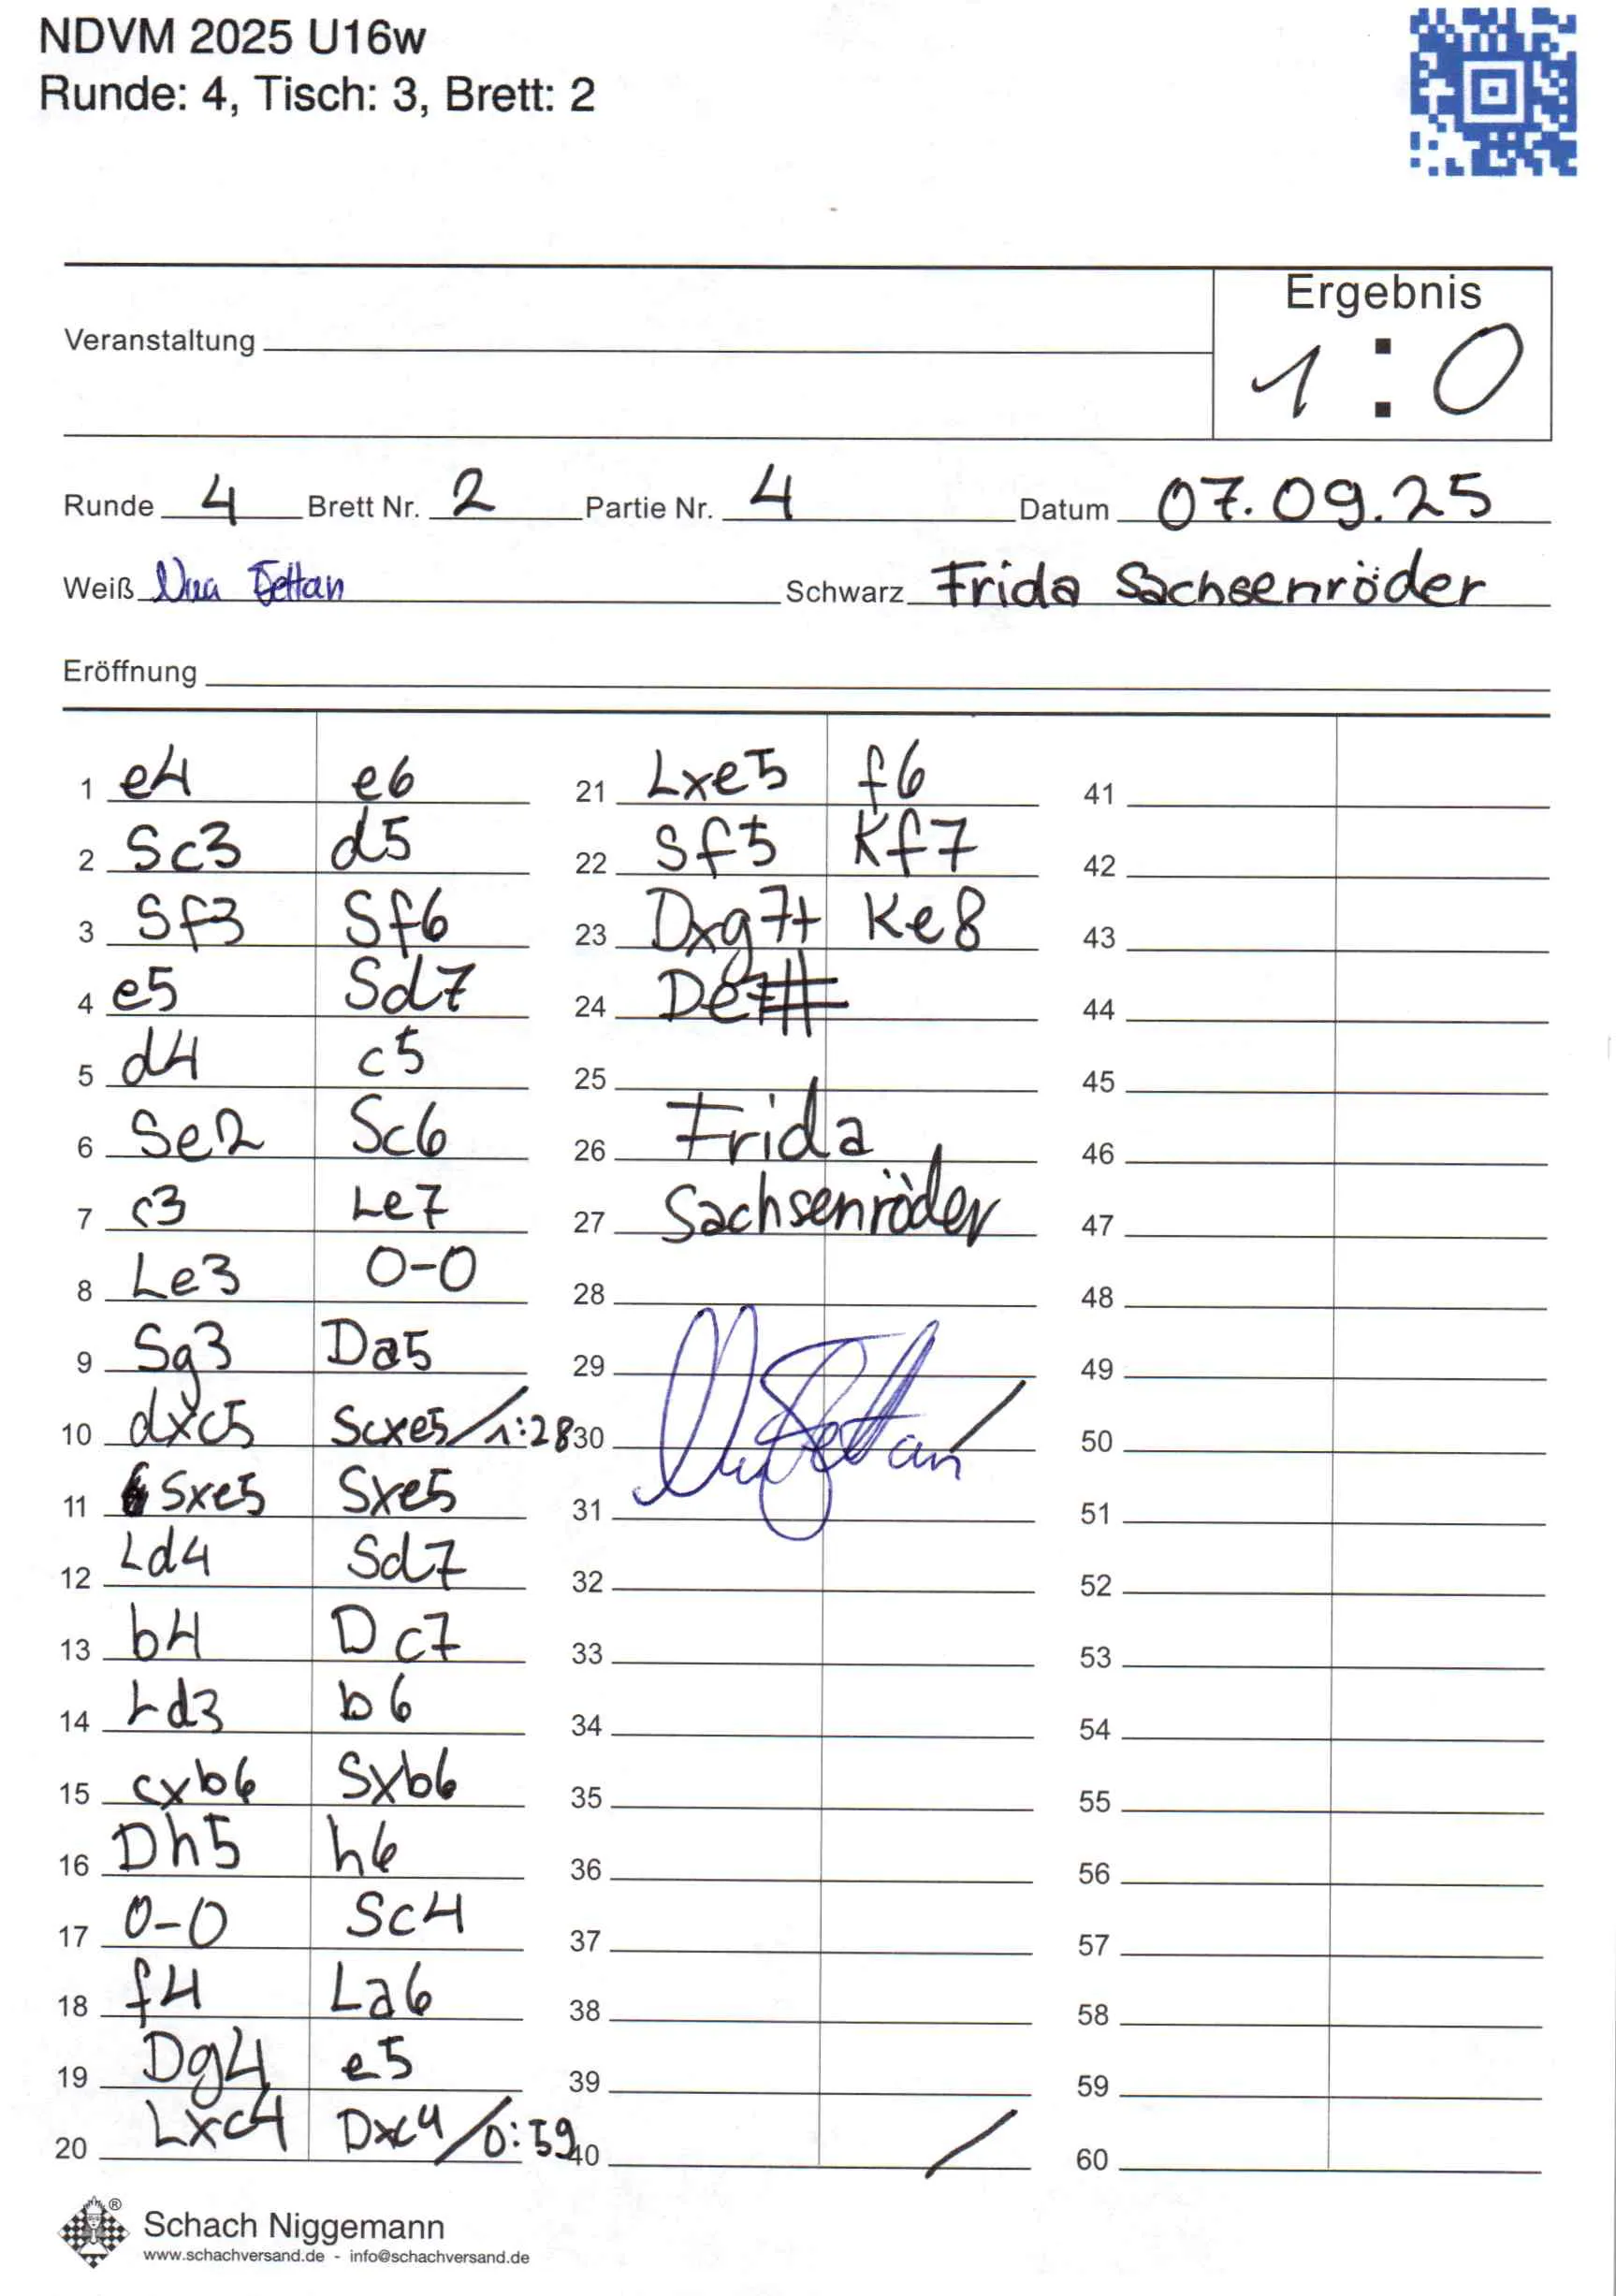 NDVM 2025 U16w
Runde: 4, Tisch: 3, Brett: 2
Ergebnis
Veranstaltung
1 : 0
Runde 4 Brett Nr. 2 Partie Nr. 4 Datum 07.09.25
Weiß Schwarz Frida Sachsenröder
Eröffnung
1 e4 e6 21 Lxe5 f6 41
2 Sc3 d5 22 Sf5 Kf7 42
3 Sf3 Sf6 23 Dxg7+ Ke8 43
4 e5 Sd7 24 De7# 44
5 d4 c5 25 45
6 Se2 Sc6 26 Frida 46
7 c3 Le7 27 Sachsenröder 47
8 Le3 0-0 28 48
9 Sg3 Da5 29 49
10 dxc5 Scxe5/1:28 30 50
11 Sxe5 Sxe5 31 51
12 Ld4 Sd7 32 52
13 b4 Dc7 33 53
14 Ld3 b6 34 54
15 cxb6 Sxb6 35 55
16 Dh5 h6 36 56
17 0-0 Sc4 37 57
18 f4 La6 38 58
19 Dg4 e5 39 59
20 Lxc4 Dxc4/0:59 40 60
Schach Niggemann
www.schachversand.de - info@schachversand.de